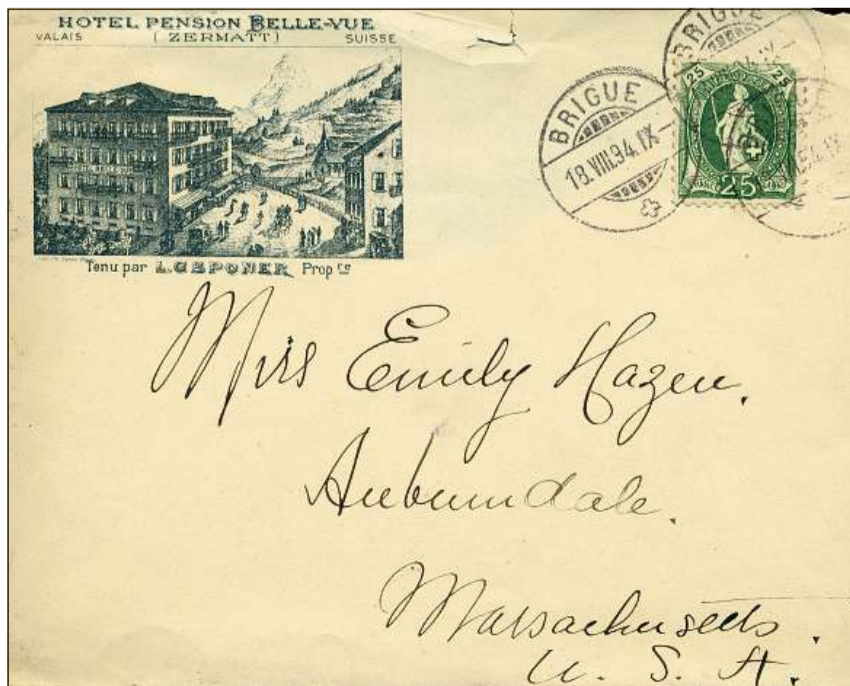 HOTEL PENSION BELLE-VUE
VALAIS (ZERMATT) SUISSE
Tenu par L. GSPONER Prop re
BRIGUE
18.VIII.94.IX
BRIGUE
IX
25 25
25
4.IX
Miss Emily Hazen.
Auburndale.
Massachusetts.
U. S. A.